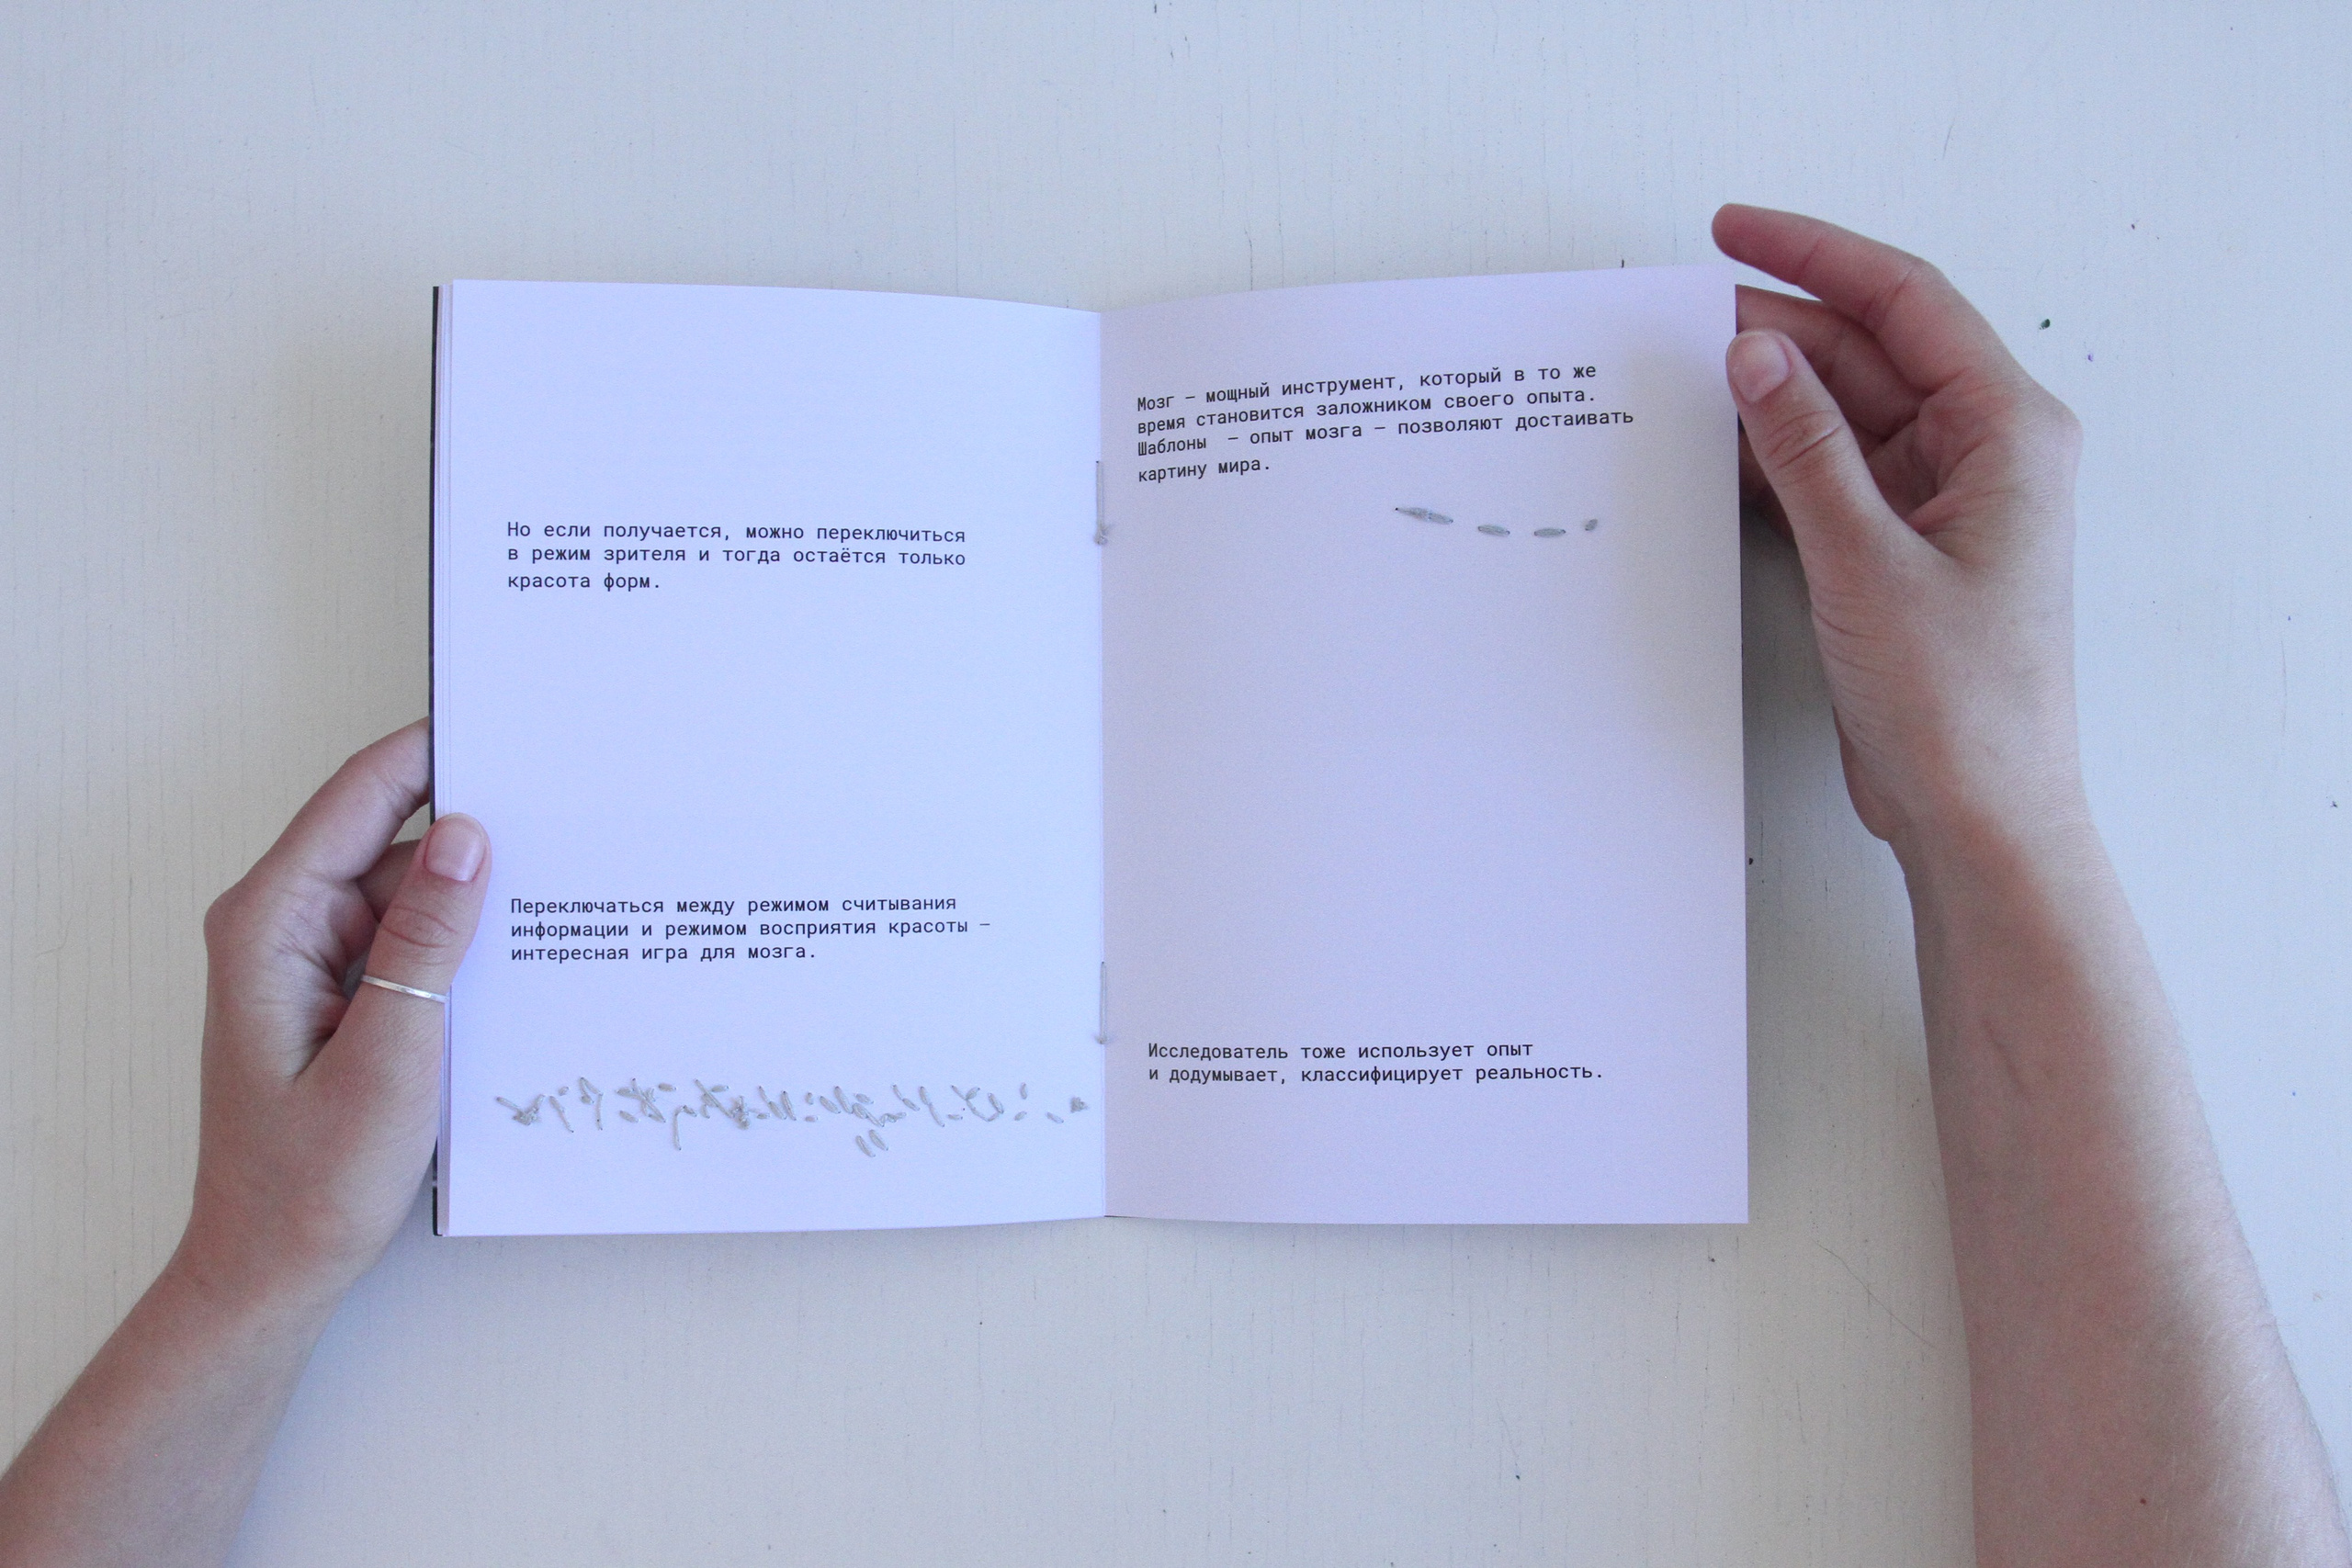 Но если получается, можно переключиться
в режим зрителя и тогда остаётся только
красота форм.
Переключаться между режимом считывания
информации и режимом восприятия красоты –
интересная игра для мозга.
Мозг – мощный инструмент, который в то же
время становится заложником своего опыта.
Шаблоны – опыт мозга – позволяют достаивать
картину мира.
Исследователь тоже использует опыт
и додумывает, классифицирует реальность.